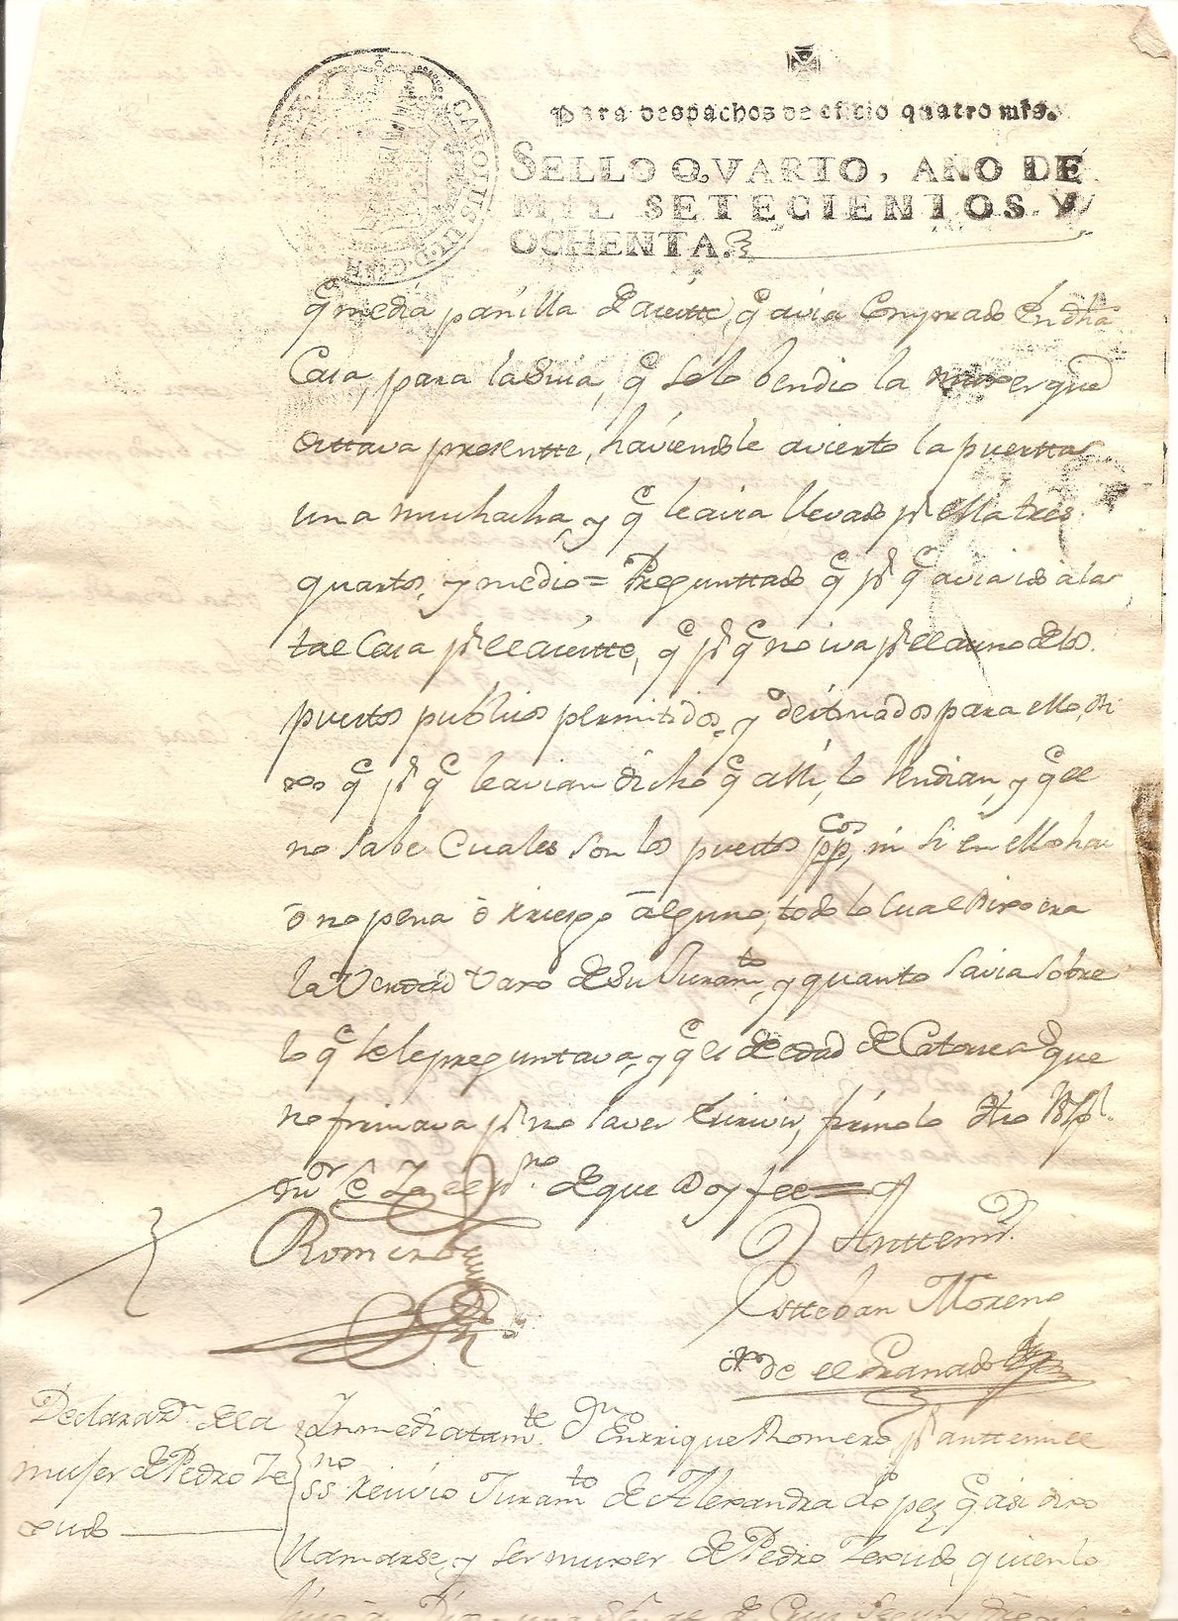 CAROLUS III D G HISP
Para despachos de oficio quatro mrs.
SELLO QVARTO, AÑO DE
MIL SETECIENTOS Y
OCHENTA.
q media panilla de aceitte, q avia Comprado en dha
Casa, para la Suia, q se lo bendio la muxer que
esttava presentte, haviendole avierto la puertta
una muchacha, y q le avia llevado pr ella tres
quartos, y medio = Preguntado q pr q avia ido a la
tal Casa pr el aceitte, q pr q no iva pr el a uno de los
puestos publicos permitidos, y destinados para ello, di
xo q pr q le avian dicho q alli, lo Vendian, y q el
no save Cuales son los puestos ppcos, ni si en ello hai
ò no pena ò riesgo alguno, todo lo cual dixo era
la Verdad vaxo de su Juramto, y quanto savia sobre
lo q se le preguntava, y q es de edad de Catorce a que
no firmava pr no saver escrivir, firmolo dho
de que doy fee =
Romero
Anttemi
Estteban Moreno
de el Granado
Declarazn de la
muger de Pedro Ze
xudo
Inmediatamte dho Enrrique Romero pr antte mi el
ssno recivio Juramto de Alexandra Lopez q asi dixo
llamarse, y ser muxer de Pedro Zexudo, quien lo